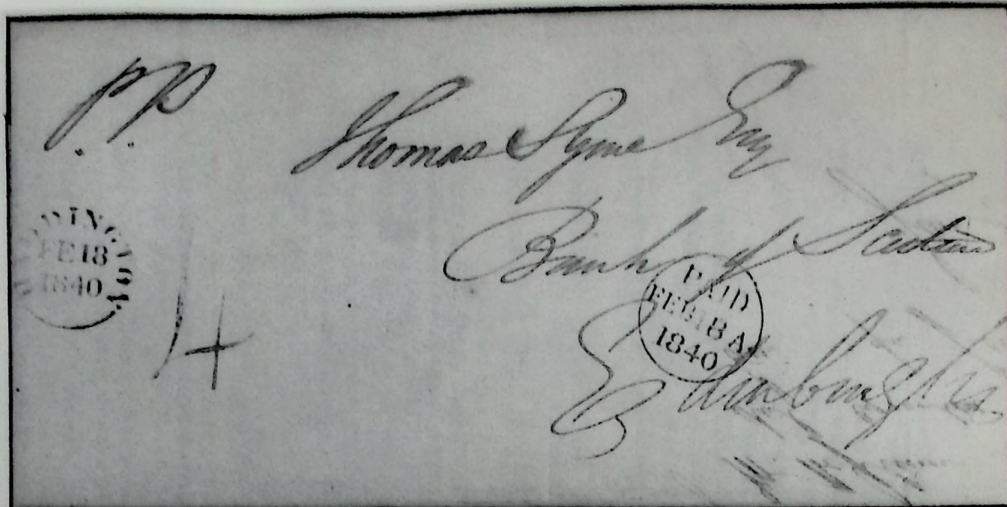 P.P.
Thomas Syme Esq
Bank of Scotland
Edinburgh
FE 18
1840
PAID
FEB 18 A
1840